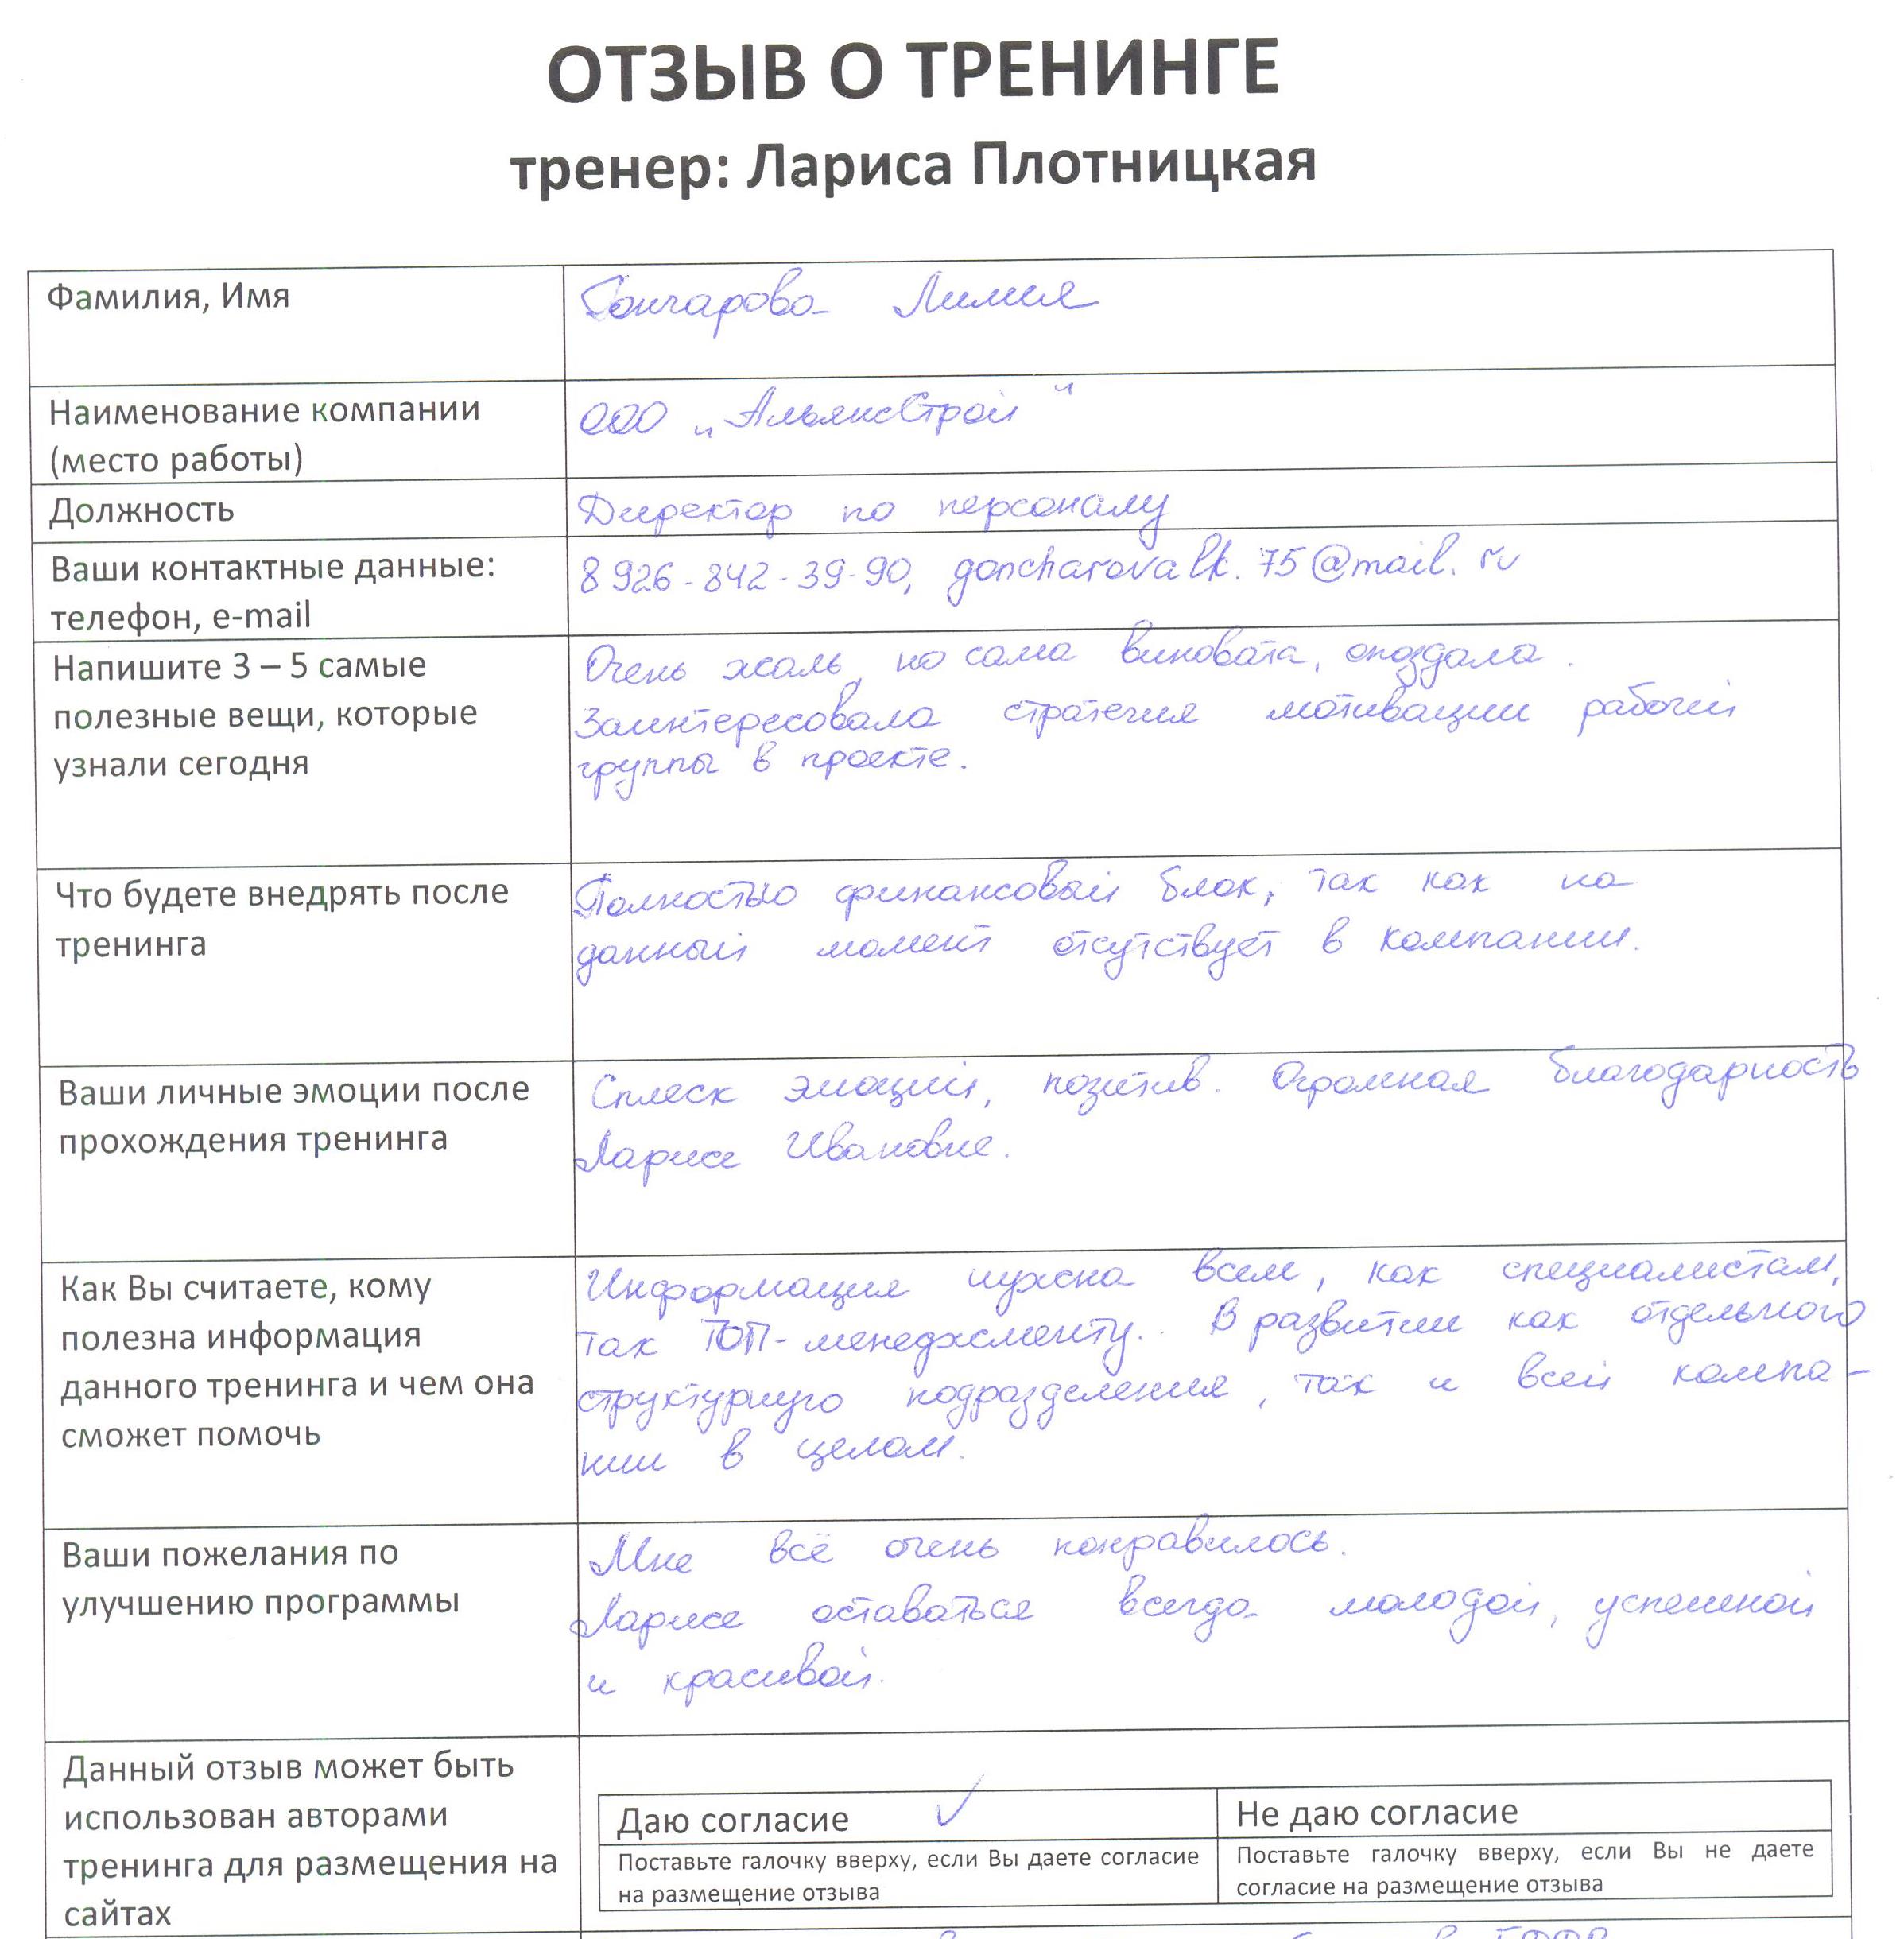 ОТЗЫВ О ТРЕНИНГЕ
тренер: Лариса Плотницкая
Фамилия, Имя
Гончарова Лилия
Наименование компании
(место работы)
ООО „АльянсСтрой"
Должность
Директор по персоналу
Ваши контактные данные:
телефон, e-mail
8 926-842-39-90, goncharovalk.75@mail.ru
Напишите 3 – 5 самые
полезные вещи, которые
узнали сегодня
Очень жаль, но сама виновата, опоздала.
Заинтересовала стратегия мотивации рабочей
группы в проекте.
Что будете внедрять после
тренинга
Полностью финансовый блок, так как на
данный момент отсутствует в компании.
Ваши личные эмоции после
прохождения тренинга
Сплеск эмоций, позитив. Огромная благодарность
Ларисе Ивановне.
Как Вы считаете, кому
полезна информация
данного тренинга и чем она
сможет помочь
Информация нужна всем, как специалистам,
так ТОП-менеджменту. В развитии как отдельного
структурного подразделения, так и всей компа-
нии в целом.
Ваши пожелания по
улучшению программы
Мне всё очень понравилось.
Ларисе оставаться всегда молодой, успешной
и красивой.
Данный отзыв может быть
использован авторами
тренинга для размещения на
сайтах
Даю согласие ✓
Поставьте галочку вверху, если Вы даете согласие
на размещение отзыва
Не даю согласие
Поставьте галочку вверху, если Вы не даете
согласие на размещение отзыва